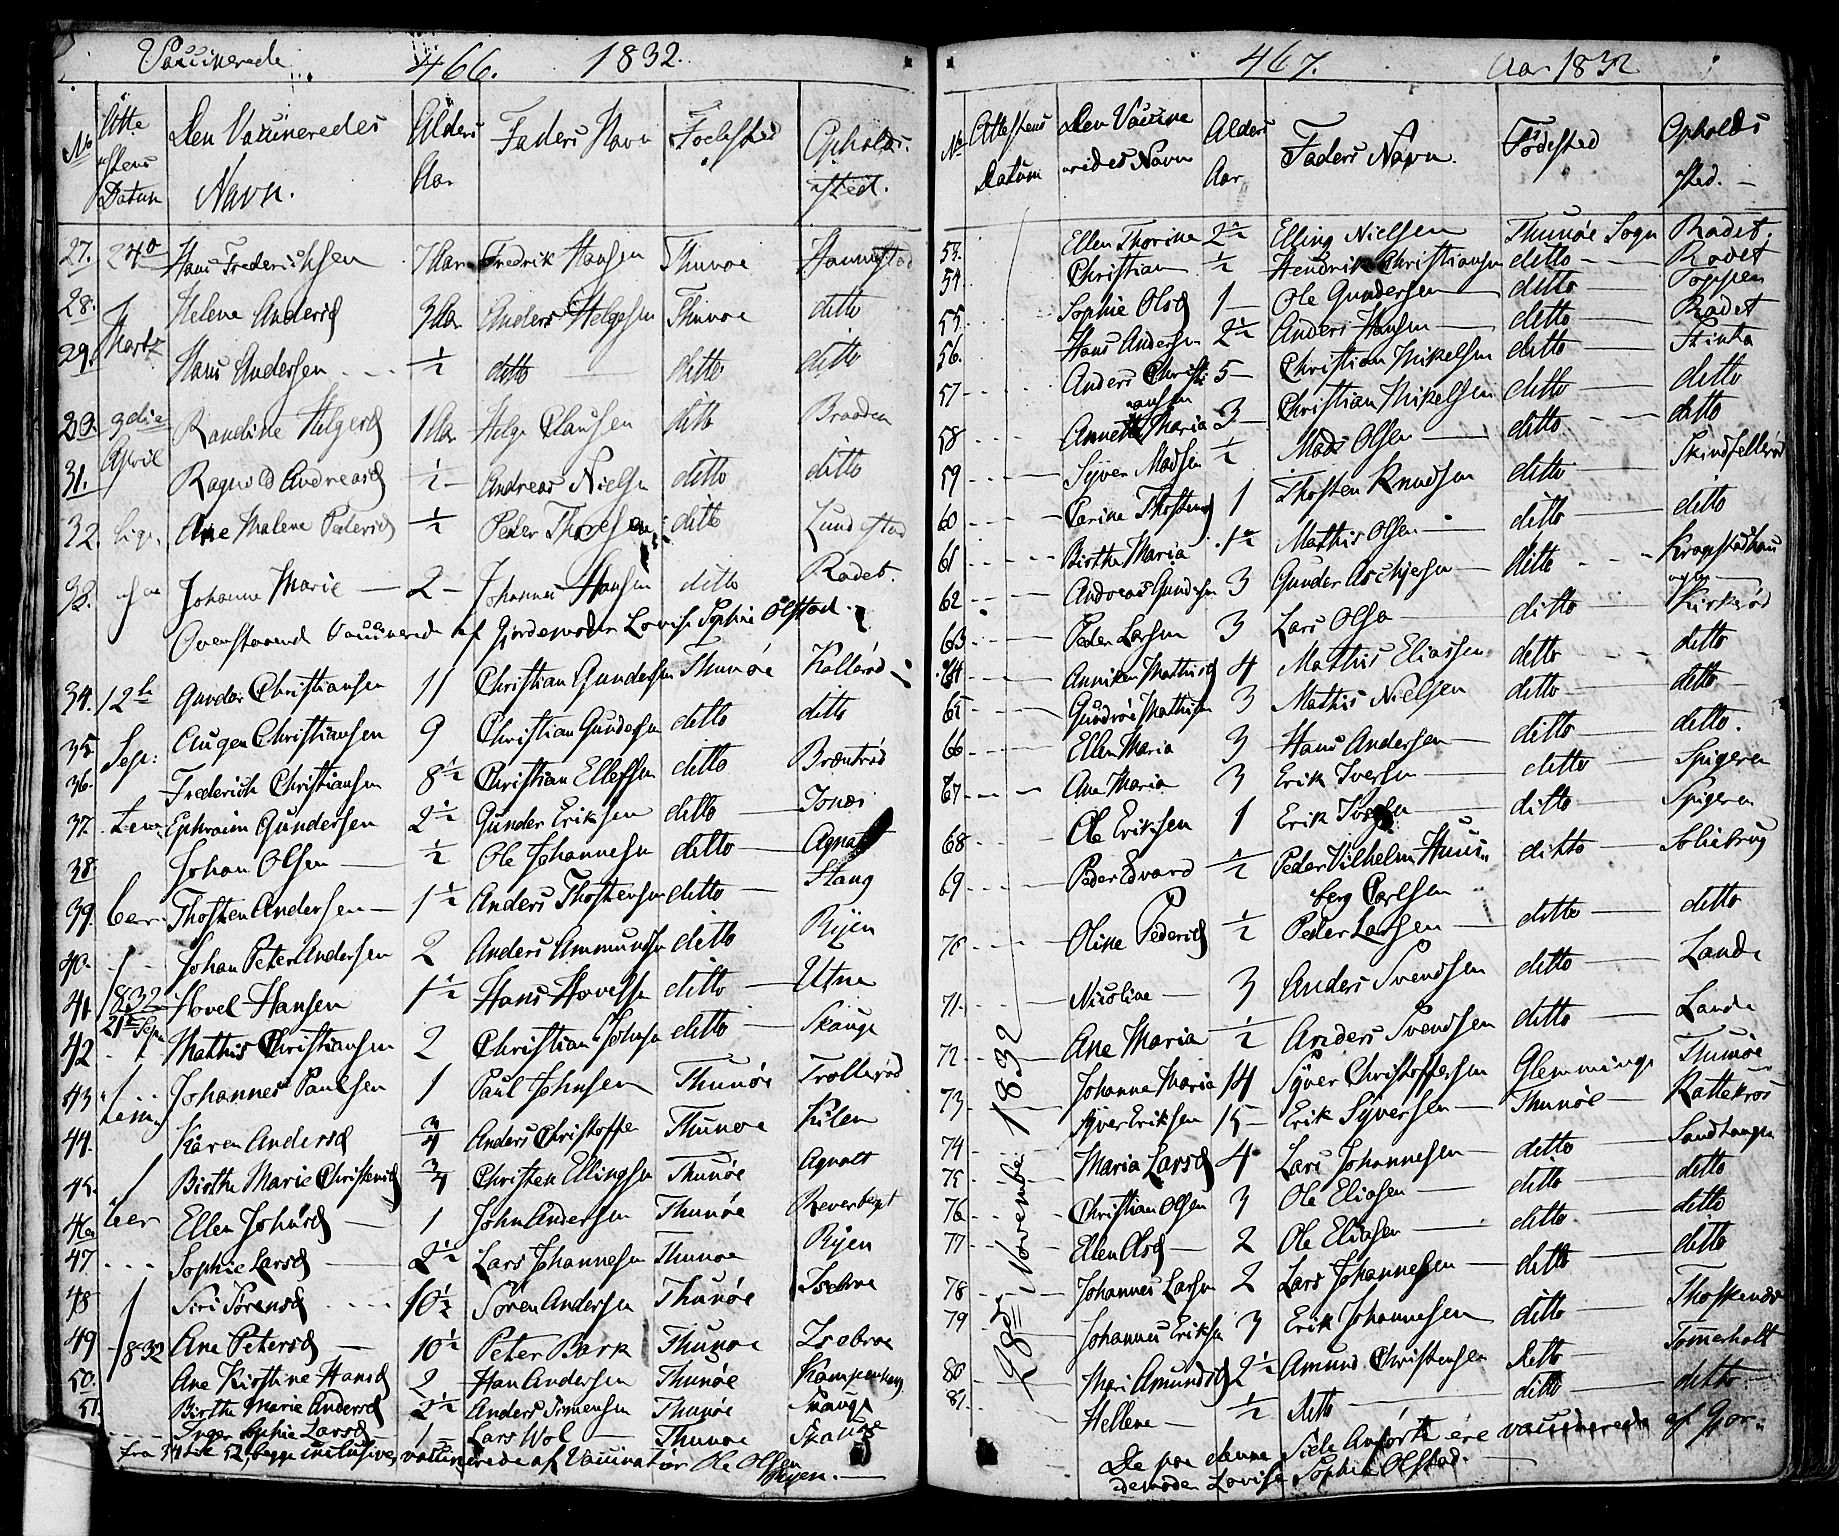 Vaccinerede 466. 1832.
No Atte stens Datum Den Vaccineredes Navn. Alders Aar Faders Navn Fødested Opholds sted.
27. 24de Hans Frederichsen 7 Aar Fredrik Hansen Thunøe
28. Martz Helene Andersd 3 Aar Anders Helgesen Thunøe ditto
29. Hans Andersen ½ ditto ditto ditto
30. 3die April Randine Helgesd 1 Aar Helge Clausen ditto Braaden
31. Ragnild Andreasd ½ Andreas Nielsn ditto ditto
32. Ane Malene Pedersd ½ Peder Thoresen ditto Lundestad
33. Johanne Marie 2 Johannes Hansen ditto Rødet.
Ovenstaaende Vaccinerede af Gjordemoder Lovise Sophie Olstad.
34. 12te Gunder Christiansen 11 Christian Gundersen Thunøe Kallerød
35. Sep: Augen Christiansen 9 Christian Gundersen ditto ditto
36. Frederich Christiansen 8½ Christian Ellefsen ditto Bræntrød
37. tem Ephraim Gundersen 2½ Gunder Eriksen ditto Jonæs
38. Johan Olsen ½ Ole Johannesn ditto Agnalt
39. ber Thosten Andersen 1½ Anders Thostensen ditto Stang
40. Johan Peter Andersen 2 Anders Ammundsn ditto Ryen
41. 1832 Hovel Hansen 1½ Hans Hovelsn ditto Utne
42 21de Sep Mathis Christiansen 2 Christian Johnsn ditto Skauge
43 Johannes Paulsen 1 Paul Johnsen Thunøe Trollerød
44. Karen Andersd ¾ Anders Christoffe Thunøe Kilen
45. Birthe Marie Christensd ¾ Christen Ellingsen Thunøe Agnalt
46 ber Ellen Johnsd 1 John Andersen Thunøe
47 Sophie Larsd 2½ Lars Johannesen Thunøe Ryen
48 Siri Sørensd 10½ Søren Andersen Thunøe Isebroe
49 1832 Ane Petersd 10½ Peter Bark Thunøe Isebroe
50. Ane Kirstine Hansd 2 Han Andersen Thunøe
51 Birthe Marie Andersd 2½ Anders Simensen Thunøe Skauge
Inger Sophie Larsd 1 Lars Wol Thunøe Skauge
fra 34 til 52, begge inclusive, vaccinerede af Vaccinatør Ole Olsen
Ryen.
467. Aar 1832
No Attestens Datum Den Vaccine redes Navn Alders Aar Faders Navn. Fødested Opholds sted.
53. Ellen Thorine 2½ Elling Nielsen Thunøe Sogn Rødet.
54. Christian ½ Hendrik Christiansen ditto Rødet
55. Sophie Olsd 1 Ole Gundersen ditto Toppen
56. Hans Andersen 2½ Anders Hansen ditto Rødet
57 Anders Christi ansen 5 Christian Mikelsen ditto
58 Annette Maria 3 Christian Mikelsen ditto ditto
59 Syver Madsen ½ Mads Olsen ditto ditto
60 Karine Thostensd 1 Thosten Knudsen ditto
61 Birthe Maria 1½ Mathis Olsen ditto ditto
62 Andreas Gundersen 3 Gunder Aschjesen ditto
63 Peder Larsen 3 Lars Olsen ditto Kirkerød
64 Anniken Mathisd 4 Mathis Eliassen ditto ditto
65 Mathisen 3 Mathis Nielsen ditto ditto
66 Ellen Maria 3 Hans Andersen ditto ditto.
67 Ane Maria 3 Erik Iversen ditto Spigeren
68 Ole Eriksen 1 Erik ditto Spigeren
69 Peder Edvard ½ Peder Vilhelm Huus berg Carlsen ditto Soliebrug
70 Oline Pedersd ½ Peder Larsen ditto ditto
71. Nicoline 3 Anders Svendsen ditto Lande
72 Ane Maria ½ Anders Svendsen ditto Lande
73 Johanne Maria 14 Syver Christoffersen Glemminge Thunøe
Syver Eriksen 15 Erik Syversen Thunøe
74 Maria Larsd 4 Lars Johannesen ditto Sandtangen
75. Christian Olsen 3 Ole Eliasen ditto ditto
76
77 Ellen Olsd 2 Ole Eliasen ditto ditto
78 Johannes Larsen 2 Lars Johannesen ditto ditto
79 Johannes Eriksn 3 Erik Johannesen ditto
80 Mari Amundsd 2½ Amund Christensen ditto Tomerholt
81 Hellene ½ ditto ditto ditto
28de November 1832
De paa denne Side Anførte ere vaccinerede af Gjor-
demoder Lovise Sophie Olstad.